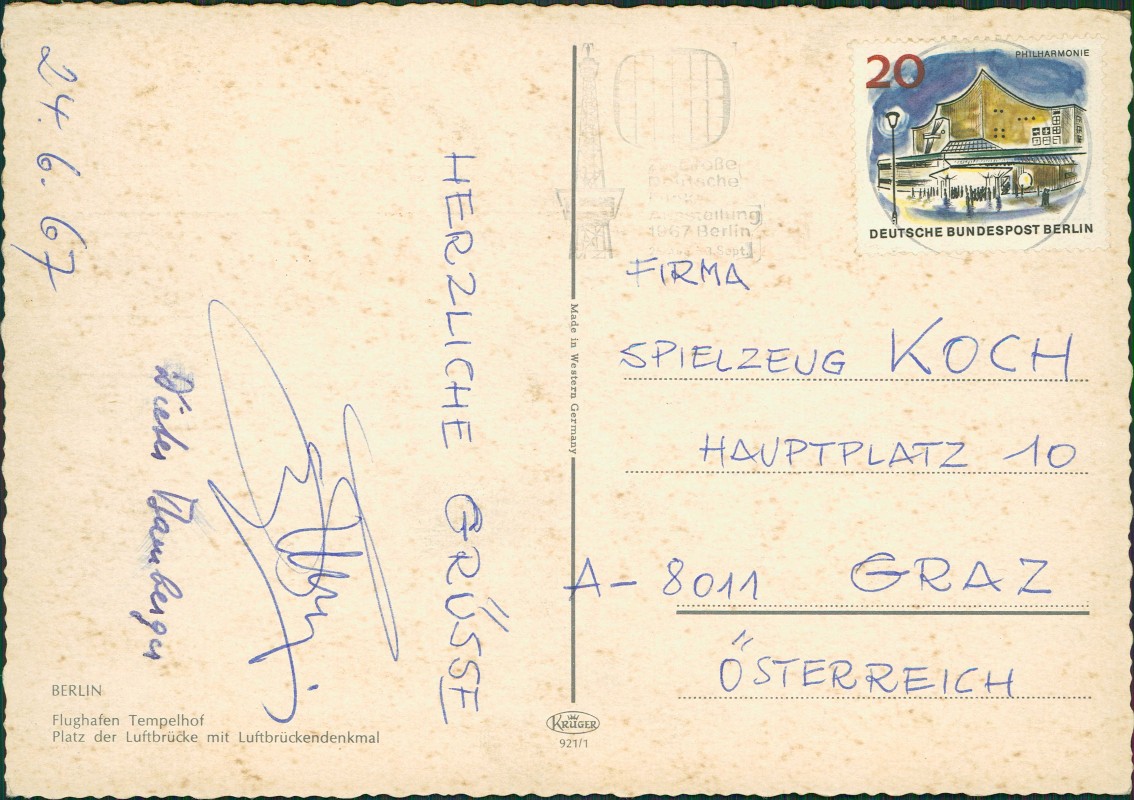 24.6.67
HERZLICHE GRÜSSE
Dieter Bamberger
BERLIN
Flughafen Tempelhof
Platz der Luftbrücke mit Luftbrückendenkmal
Made in Western Germany
KRÜGER
921/1
Große
Deutsche
Ausstellung
1967 Berlin
Sept.
20
PHILHARMONIE
DEUTSCHE BUNDESPOST BERLIN
FIRMA
SPIELZEUG KOCH
HAUPTPLATZ 10
A-8011 GRAZ
ÖSTERREICH